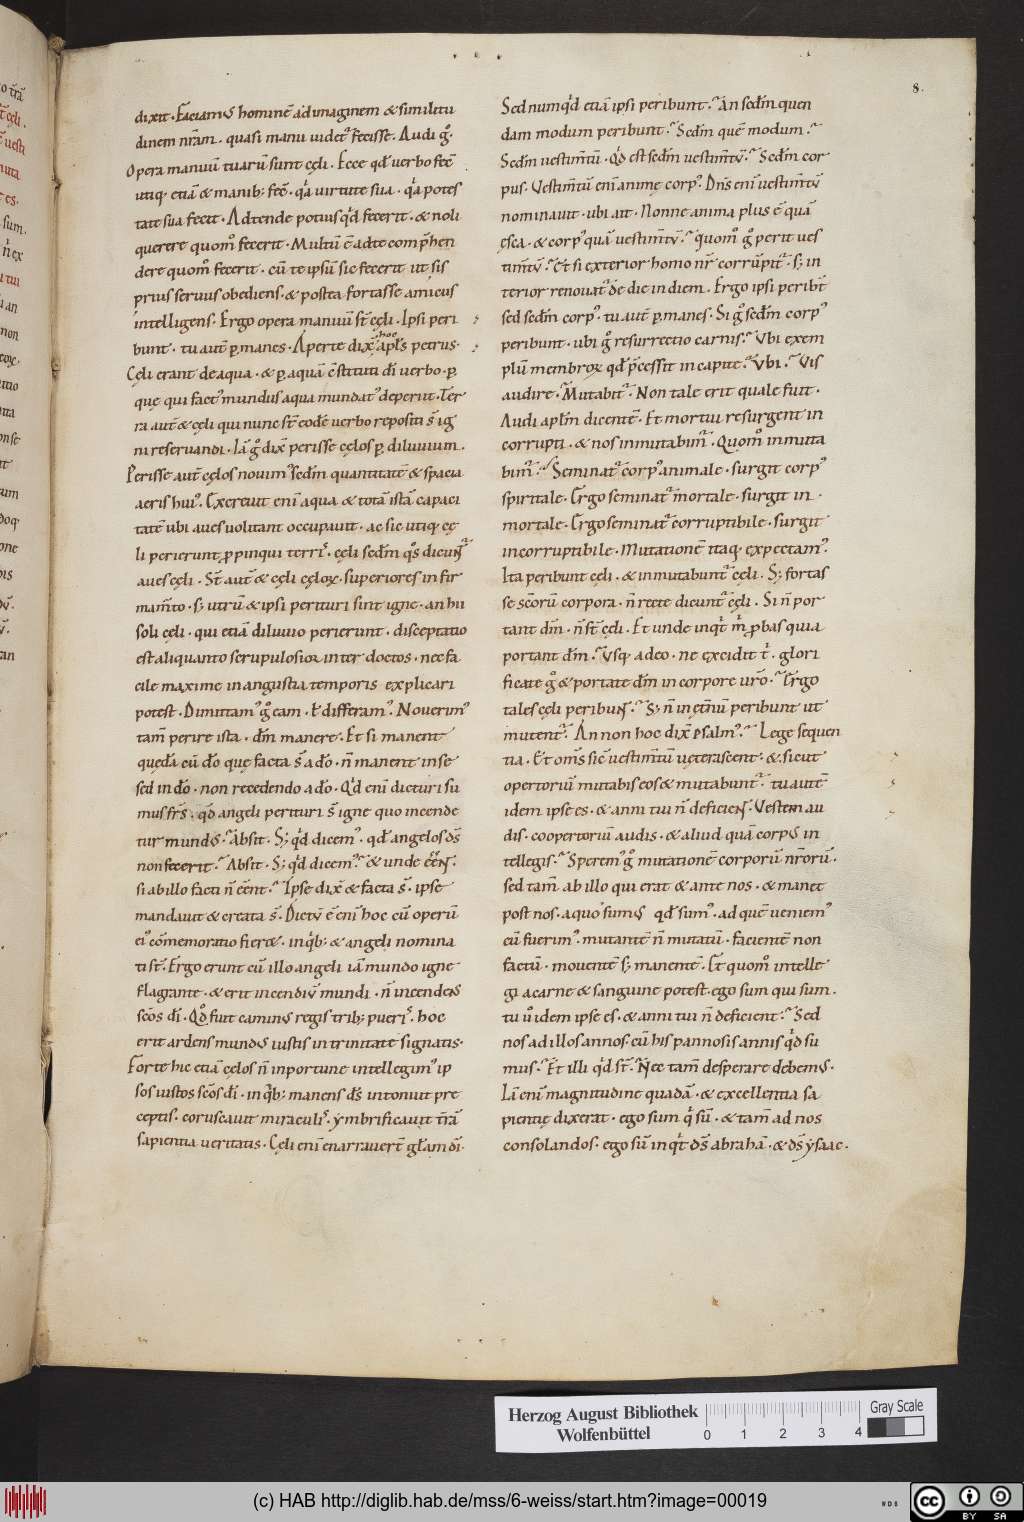 8.
dixit. Faciam᷒ hominē ad imaginem & similitu
dinem nr̄am. quasi manu uidet᷑ fecisse. Audi g̊.
Opera manuū tuarū sunt cęli. Ecce qd̄ uerbo fec̄
utiq; etiā & manib; fec̄. qͣ uirtute sua. qͣ potes
tate sua fecit. Adtende potius qͥd fecerit. & noli
querere quom̊ fecerit. Multū ē ad te comp̄hen
dere quom̊ fecerit. cū te ipsū sic fecerit ut sis
prius seruus obediens. & postea fortasse amicus
intelligens. Ergo opera manuū st̄ cęli. Ipsi peri
bunt. tu aut̄ ꝑmanes. Aperte dix̄ hoc apl̄s petrus.
Cęli erant de aqua. & ꝑ aquā c̄stituti dī uerbo. ꝑ
que qui fact᷒ mundus aqua inundat᷒ deperiit. Ter
ra aut̄ & cęli qui nunc st̄ eod̄ uerbo repositi s̄ ig
ni reseruandi. Iā g̊ dix̄ perisse cęlos ꝑ diluuium.
Perisse aut̄ cęlos nouim᷒ sed̄m quantitatē & spacia
aeris hui᷒. Exereuit eni aqua & totā istā capaci
tatē ubi aues uolitant occupauit. ac sic utiq; cę
li perierunt ꝓpinqui terris. cęli sed̄m qͦs dicunt᷑
aues cęli. St̄ aut̄ & cęli cęloꝝ. superiores in fir
mam̄to. s; utrū & ipsi perituri sint igne. an hii
soli cęli. qui etiā diluuio perierunt. disceptatio
est aliquanto scrupulosior inter doctos. nec fa
cile maxime in angustia temporis explicari
potest. Dimittam᷒ g̊ eam. ł differam᷒. Nouerim᷒
tam̄ perire ista. dm̄ manere. Et si manent
quędā cū dō que facta s̄ a dō. n̄ manent in se
sed in dō. non recedendo a dō. Qͥd eni dicturi su
mus fr̄s. qd̄ angeli perituri s̄ igne quo incende
tur mund᷒. Absit. S; qͥd dicem᷒. qd̄ angelos ds̄
non fecerit. Absit. S; qͥd dicem᷒. & unde ēēnt.
si ab illo facti n̄ ēēnt. Ipse dix̄ & facta s̄. ipse
mandauit & creata s̄. Dictū ē eni hoc cū operū
ei᷒ cōmemoratio fieret. in qͥb; & angeli nomina
ti st̄. Ergo erunt cū illo angeli iā mundo igne
flagrante. & erit incendiū mundi. n̄ incendens
sc̄os dī. Qd̄ fuit camin᷒ regis trib; pueris. hoc
erit ardens mund᷒ iustis in trinitate signatis.
Forte hic etiā cęlos n̄ inportune intellegim᷒ ip
sos iustos sc̄os dī. in qͥb; manens ds̄ intonuit pre
ceptis. coruscauit miraculis. ymbrificauit tr̄ā
sapientia ueritatis. Cęli eni enarrauert̄ gl̄am dī.
Sed numqͥd etiā ipsi peribunt. An sed̄m quen
dam modum peribunt. Sed̄m quē modum.
Sed̄m uestim̄tū. Qd̄ est sed̄m uestim̄tū. Sed̄m cor
pus. Vestim̄tū eni animę corp᷒. Dn̄s eni uestim̄tū
nominauit. ubi ait. Nonne anima plus ē quā
ęsca. & corp᷒ quā uestim̄tū. Quom̊ g̊ perit ues
tim̄tū. Et si exterior homo nr̄ corrūpit᷑. s; in
terior renouat᷑ de die in diem. Ergo ipsi peribt̄
sed sed̄m corp᷒. tu aut̄ ꝑmanes. Si g̊ sed̄m corp᷒
peribunt. ubi g̊ resurrectio carnis. Vbi exem
plū membroꝝ qd̄ p̄cessit in capite. Vbi. Vis
audire. Mutabit᷑. Non tale erit quale fuit.
Audi apl̄m dicentē. Et mortui resurgent in
corrupti. & nos inmutabim᷑. Quom̊ inmuta
bim᷑. Seminat᷑ corp᷒ animale. surgit corp᷒
spiritale. Ergo seminat᷑ mortale. surgit in
mortale. Ergo seminat᷑ corruptibile. surgit
incorruptibile. Mutationē itaq; expectam᷒.
Ita peribunt cęli. & inmutabunt᷑ cęli. S; fortas
se sc̄orū corpora. n̄ recte dicunt᷑ cęli. Si n̄ por
tant dm̄. n̄ st̄ cęli. Et unde inqͥt m̄ ꝓbas quia
portant dm̄. Vsq; adeo. ne excidit t̄. glori
ficate g̊ & portate dm̄ in corpore uro. Ergo
tales cęli peribunt. S; n̄ in ęt̄nū peribunt ut
mutent᷑. An non hoc dix̄ psalm᷒. Lege sequen
tia. Et oms̄ sic̄ uestim̄tū uęterascent. & sicut
opertoriū mutabis eos & mutabunt᷑. tu autē
idem ipse es. & anni tui n̄ deficient. Vestem au
dis. coopertoriū audis. & aliud quā corp᷒ in
tellegis. Sperem᷒ g̊ mutationē corporū nr̄orū.
sed tam̄ ab illo qui erat & ante nos. & manet
post nos. a quo sum᷒ qd̄ sum᷒. ad quē ueniem᷒
cū fuerim᷒. mutantē n̄ mutatū. facientē non
factū. mouentē s; manentē. Et quom̊ intelle
gi a carne & sanguine potest. ego sum qui sum.
tu ů idem ipse es. & anni tui n̄ deficient. Sed
nos ad illos annos. cū his pannosis annis qͥd su
mus. Et illi qͥd st̄. Nec tam̄ desperare debem᷒.
Iā eni magnitudine quadā. & excellentia sa
pientię dixerat. ego sum qͥ sū. & tam̄ ad nos
consolandos. ego sū inqͥt ds̄ abrahā. & ds̄ ysaac.
Herzog August Bibliothek
Wolfenbüttel
0 1 2 3 4
Gray Scale
(c) HAB http://diglib.hab.de/mss/6-weiss/start.htm?image=00019
cc BY SA